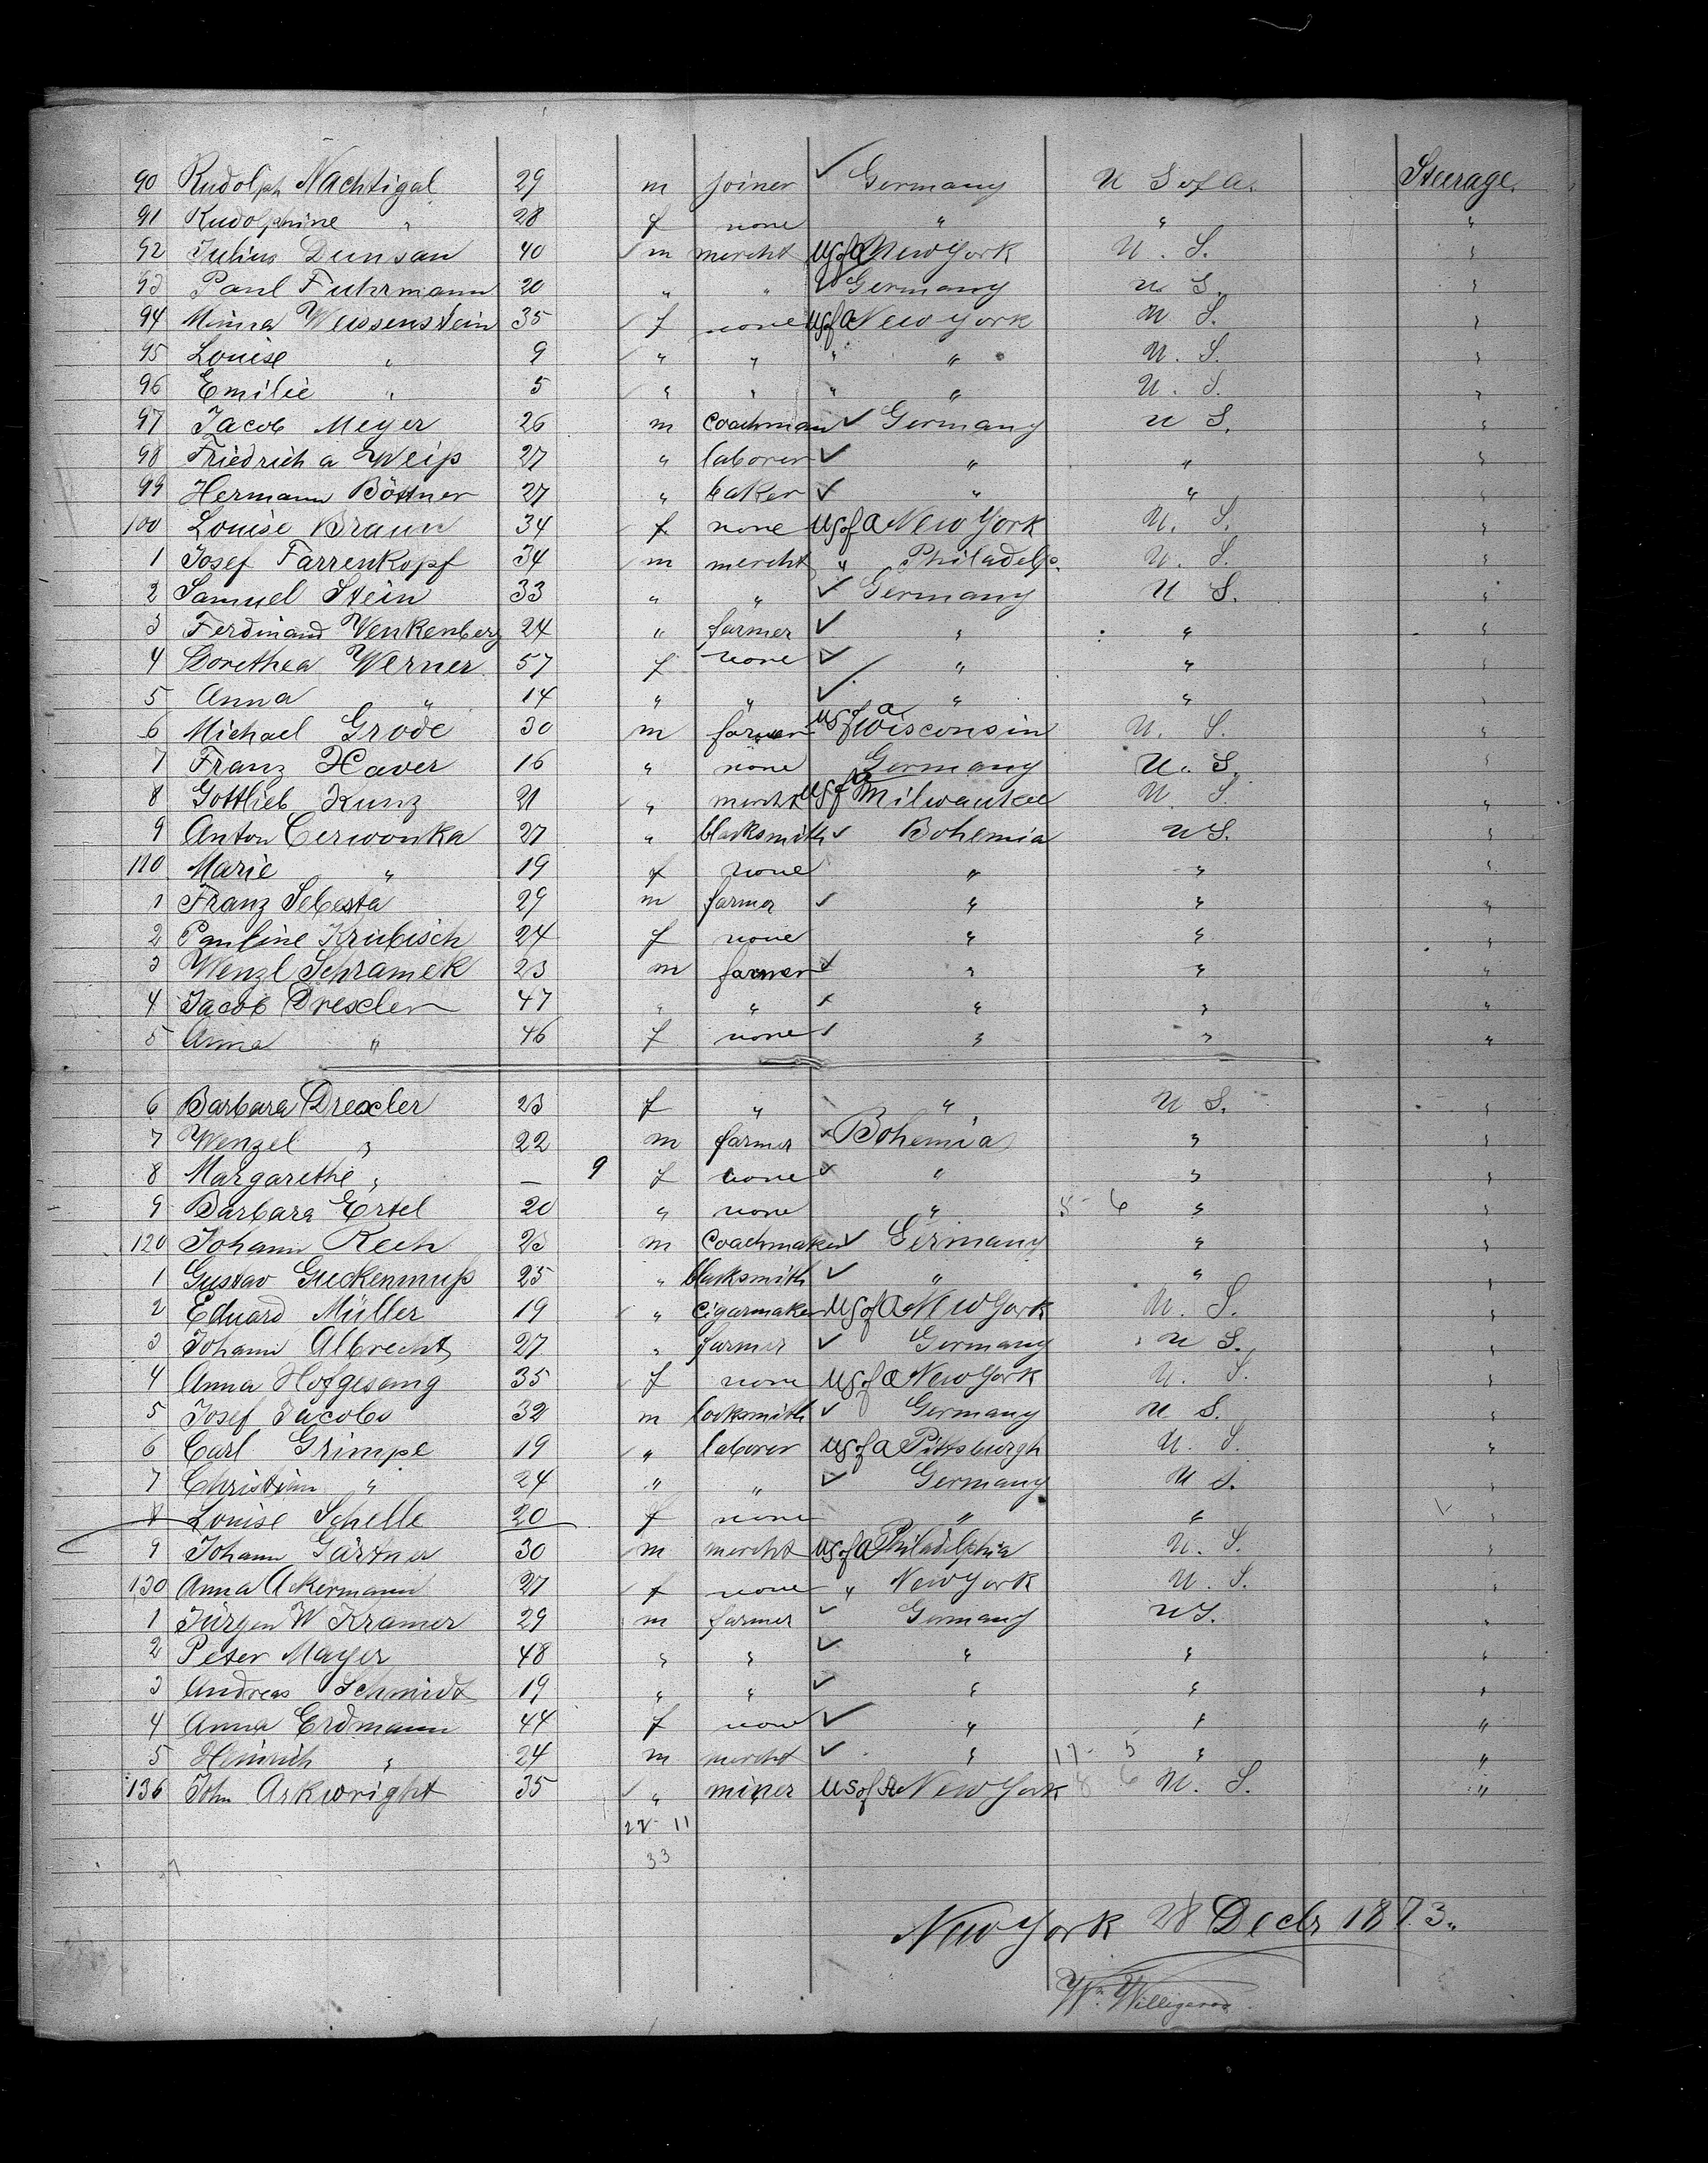 90 Rudolph Nachtigal 29 m joiner ✓ Germany U S of A. Steerage.
91 Rudolphine " 28 f none " " "
92 Julius Dunsan 40 ✓ m mercht US of A New York U. S. "
93 Paul Fuhrmann 20 " " ✓ Germany U S. "
94 Minna Weissenstein 35 ✓ f none US of A New York U S. "
95 Louise " 9 ✓ " " " " U. S. "
96 Emilie " 5 ✓ " " " " U. S. "
97 Jacob Meyer 26 m coachman ✓ Germany U S. "
98 Friedrich a Weiß 27 " laborer ✓ " " "
99 Hermann Böttner 27 " baker ✓ " " "
100 Louise Braun 34 ✓ f none US of A New York U. S. "
1 Josef Farrenkopf 34 ✓ m mercht " Philadelp. U. S. "
2 Samuel Stein 33 " " ✓ Germany U S. "
3 Ferdinand Venkenberg 24 " farmer ✓ " " "
4 Dorethea Werner 57 f none ✓ " " "
5 Anna " 14 " " ✓ " " "
6 Michael Grode 30 m farmer US of A Wisconsin U. S. "
7 Franz Haver 16 " none Germany U. S. "
8 Gottlieb Kunz 21 " mercht US of A Milwaukee U. S. "
9 Anton Cerwonka 27 " blacksmith ✓ Bohemia U S. "
110 Marie " 19 f none " " "
1 Franz Sebesta 29 m farmer ✓ " " "
2 Pauline Krubisch 24 f none " " "
3 Wenzl Schramek 23 m farmer ✓ " " "
4 Jacob Drexler 47 " " ✓ " " "
5 Anna " 46 f none ✓ " " "
6 Barbara Drexler 23 f " " U S. "
7 Wenzel " 22 m farmer ✓ Bohemia " "
8 Margarethe " — 9 f none ✓ " " "
9 Barbara Ertel 20 " none " 5 - 6 " "
120 Johann Rech 23 m coachmaker ✓ Germany " "
1 Gustav Guckenmuß 25 " blacksmith ✓ " " "
2 Eduard Müller 19 ✓ " cigarmaker US of A New York U. S. "
3 Johann Albrecht 27 " farmer ✓ Germany U S. "
4 Anna Hofgesang 35 ✓ f none US of A New York U. S. "
5 Josef Jacobs 32 m locksmith ✓ Germany U S. "
6 Carl Grimpe 19 ✓ " laborer US of A Pittsburgh U. S. "
7 Christian " 24 " " ✓ Germany U S. "
8 Louise Schelle 20 f none " " "
9 Johann Gärtner 30 ✓ m mercht US of A Philadelphia U. S. "
130 Anna Ackermann 27 ✓ f none " New York U. S. "
1 Jürgen W Kramer 29 m farmer ✓ Germany U S. "
2 Peter Mayer 48 " " ✓ " " "
3 Andreas Schmidt 19 " " ✓ " " "
4 Anna Erdmann 44 f none ✓ " " "
5 Heinrich " 24 m mercht ✓ " 17 - 5 " "
136 John Arkwright 35 ✓ " miner US of A New York 8 6 U. S. "
22 - 11
33
New York 28 Decbr 1873.
Wm. Willigerod